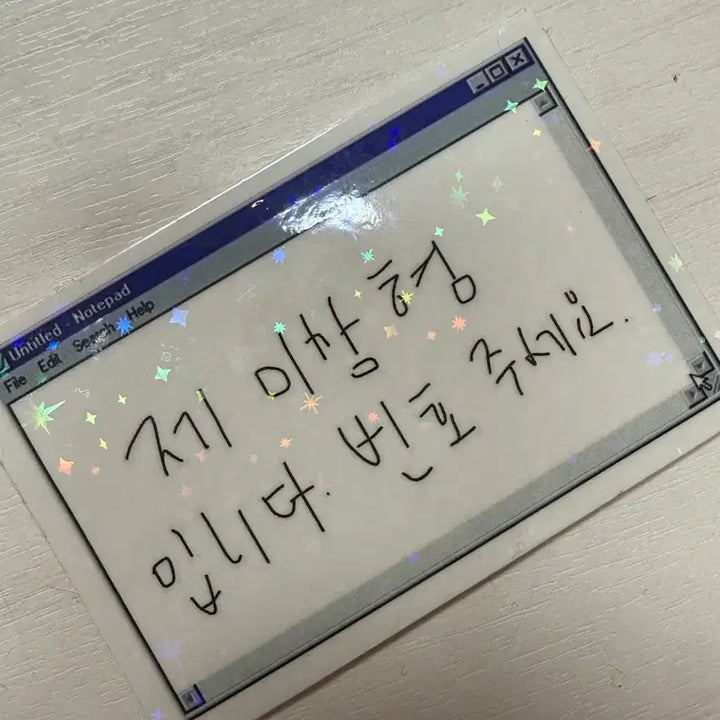 Untitled - Notepad
File Edit Search Help
제 이상형
입니다. 번호 주세요.